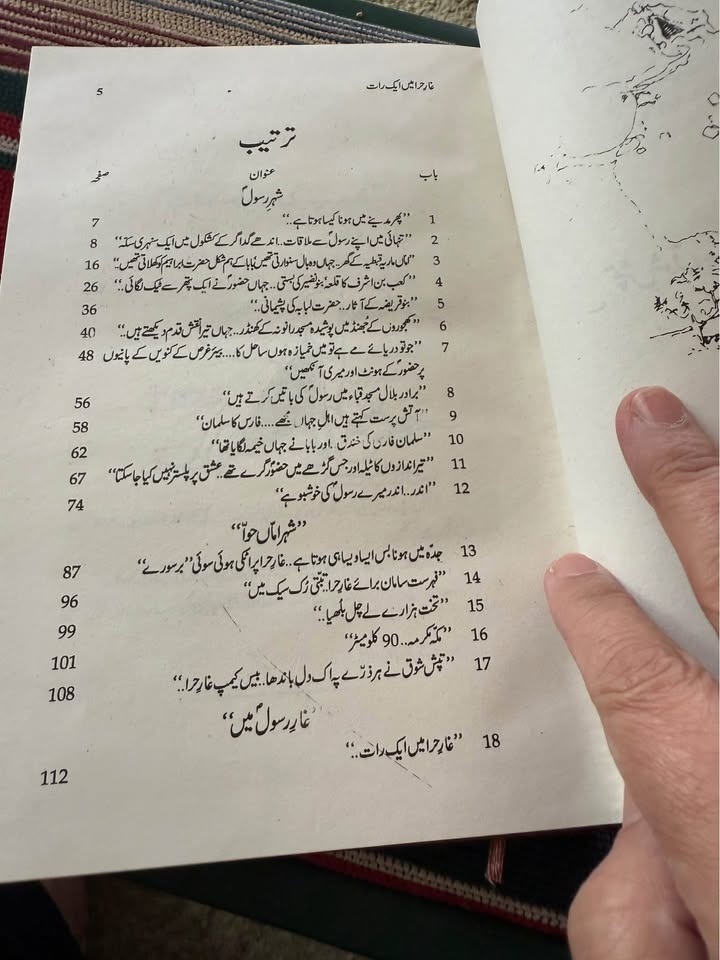 غارِ حرا میں ایک رات 5
ترتیب
باب عنوان صفحہ
شہرِ رسولؐ
1 ”پھر مدینے میں ہونا کیسا ہوتا ہے..“ 7
2 ”تنہائی میں اپنے رسولؐ سے ملاقات.. اندھے گداگر کے کشکول میں ایک سنہری سکہ“ 8
3 ”اماں ماریہ قبطیہ کے گھر.. جہاں وہ بال سنوارتی تھیں بابا کے ہم شکل حضرت ابراہیم کو کھلاتی تھیں“ 16
4 ”کعب بن اشرف کا قلعہ بنو نضیر کی بستی.. جہاں حضورؐ نے ایک پتھر سے ٹیک لگائی..“ 26
5 ”بنو قریضہ کے آثار.. حضرت لبابہ کی پشیمانی..“ 36
6 ”کھجوروں کے جھنڈ میں پوشیدہ مسجد رانونہ کے کھنڈر.. جہاں تیرا نقش قدم دیکھتے ہیں..“ 40
7 ”جو تو دریائے مے ہے تو میں خمیازہ ہوں ساحل کا.... بیئر غرص کے کنویں کے پانیوں 48
پر حضورؐ کے ہونٹ اور میری آنکھیں“
8 ”برادر بلال مسجد قباء میں رسولؐ کی باتیں کرتے ہیں“ 56
9 ”آتش پرست کہتے ہیں اہلِ جہاں مجھے.... فارس کا سلمان“ 58
10 ”سلمان فارسی کی خندق.. اور بابا نے جہاں خیمہ لگایا تھا“ 62
11 ”تیر اندازوں کا ٹیلہ اور جس گڑھے میں حضورؐ گرے تھے.. عشق پر پلستر نہیں کیا جا سکتا“ 67
12 ”اندر.. اندر میرے رسولؐ کی خوشبو ہے“ 74
”شہر اماں حوّا“
13 جدّہ میں ہونا بس ایسا ویسا ہی ہوتا ہے.. غارِ حرا پر اٹکی ہوئی سوئی ”بر سورے“ 87
14 ”فہرست سامان برائے غارِ حرا.. تبّتی رُک سیک میں“ 96
15 ”تخت ہزارے لے چل بلھیا..“ 99
16 ”مکّہ مکرمہ.. 90 کلومیٹر“ 101
17 ”تپشِ شوق نے ہر ذرّے پہ اک دل باندھا.. بیس کیمپ غارِ حرا..“ 108
”غارِ رسولؐ میں“
18 ”غارِ حرا میں ایک رات..“ 112